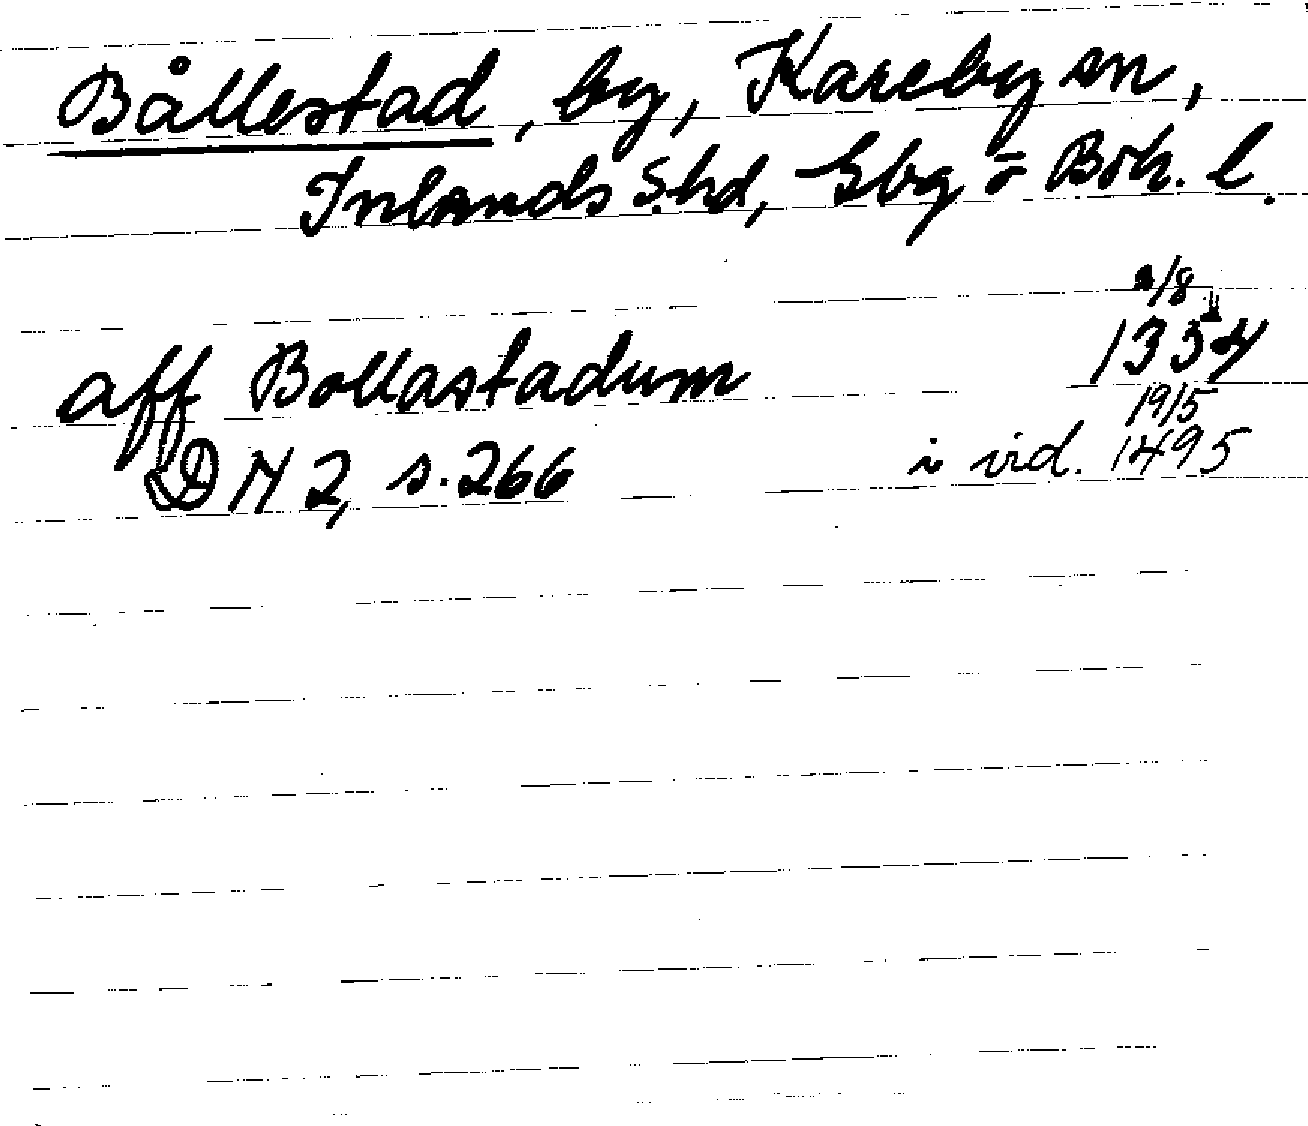 Bållestad, by, Kareby sn,
Inlands S. hd, Gbg o Boh. l.
/8
aff Bollastadum 1354
19/5
DN 2, s. 266 i vid. 1495